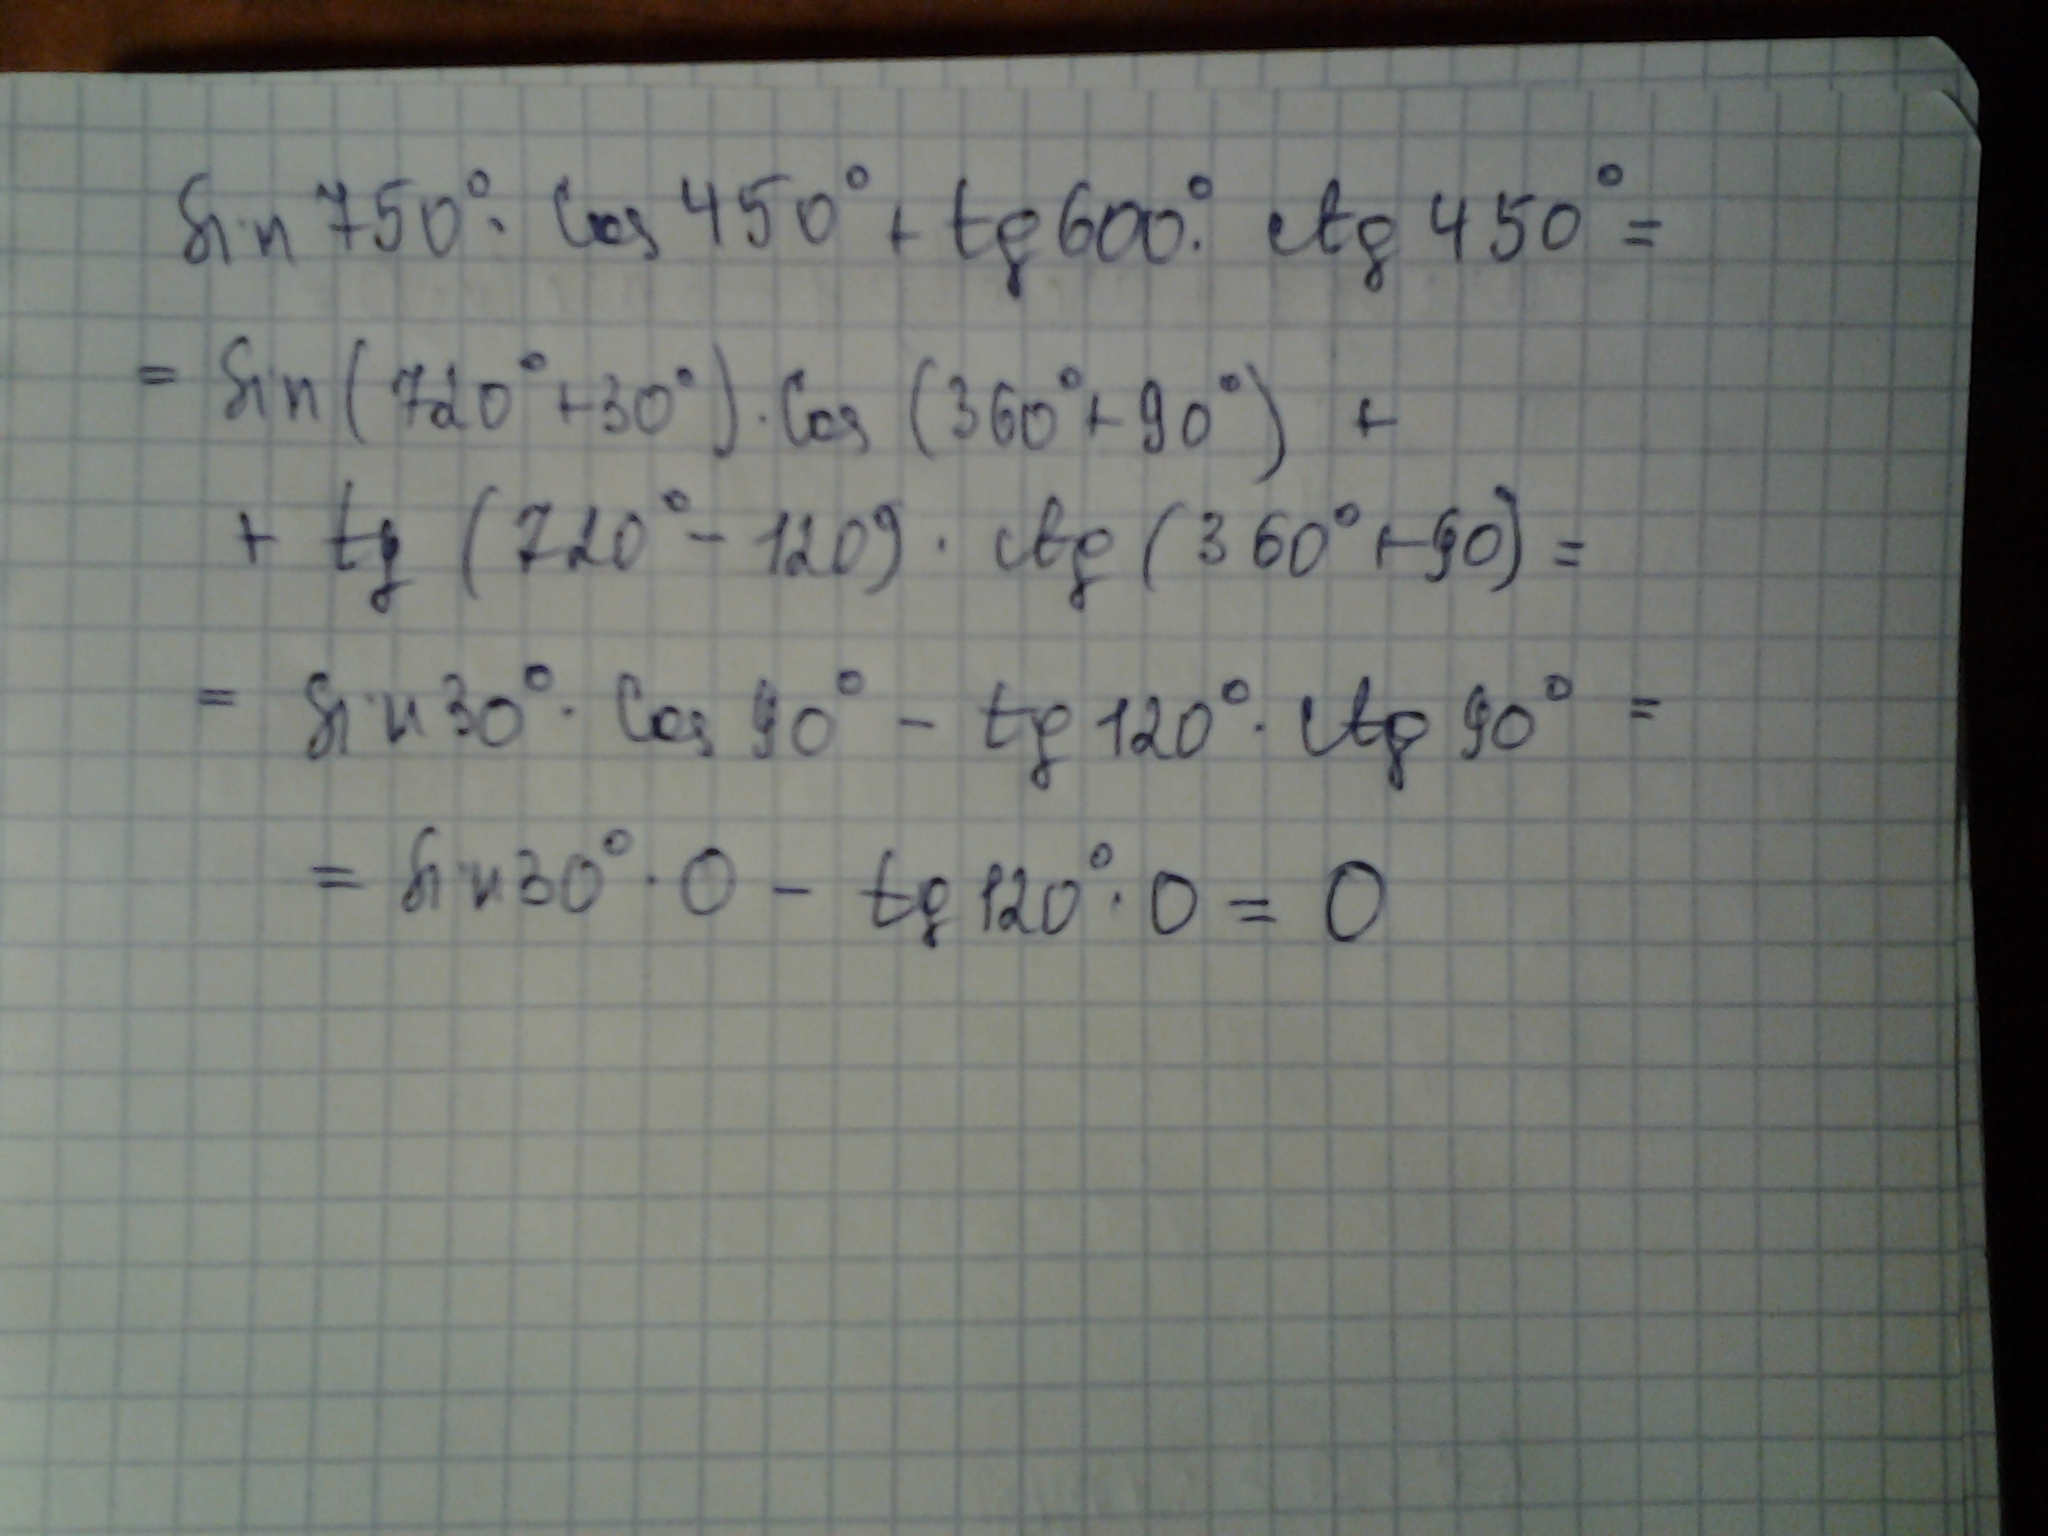 Sin 750° · Cos 450° + tg 600° · ctg 450° =
= Sin (720° + 30°) · Cos (360° + 90°) +
+ tg (720° - 120) · ctg (360° + 90) =
= Sin 30° · Cos 90° - tg 120° · ctg 90° =
= Sin 30° · 0 - tg 120° · 0 = 0